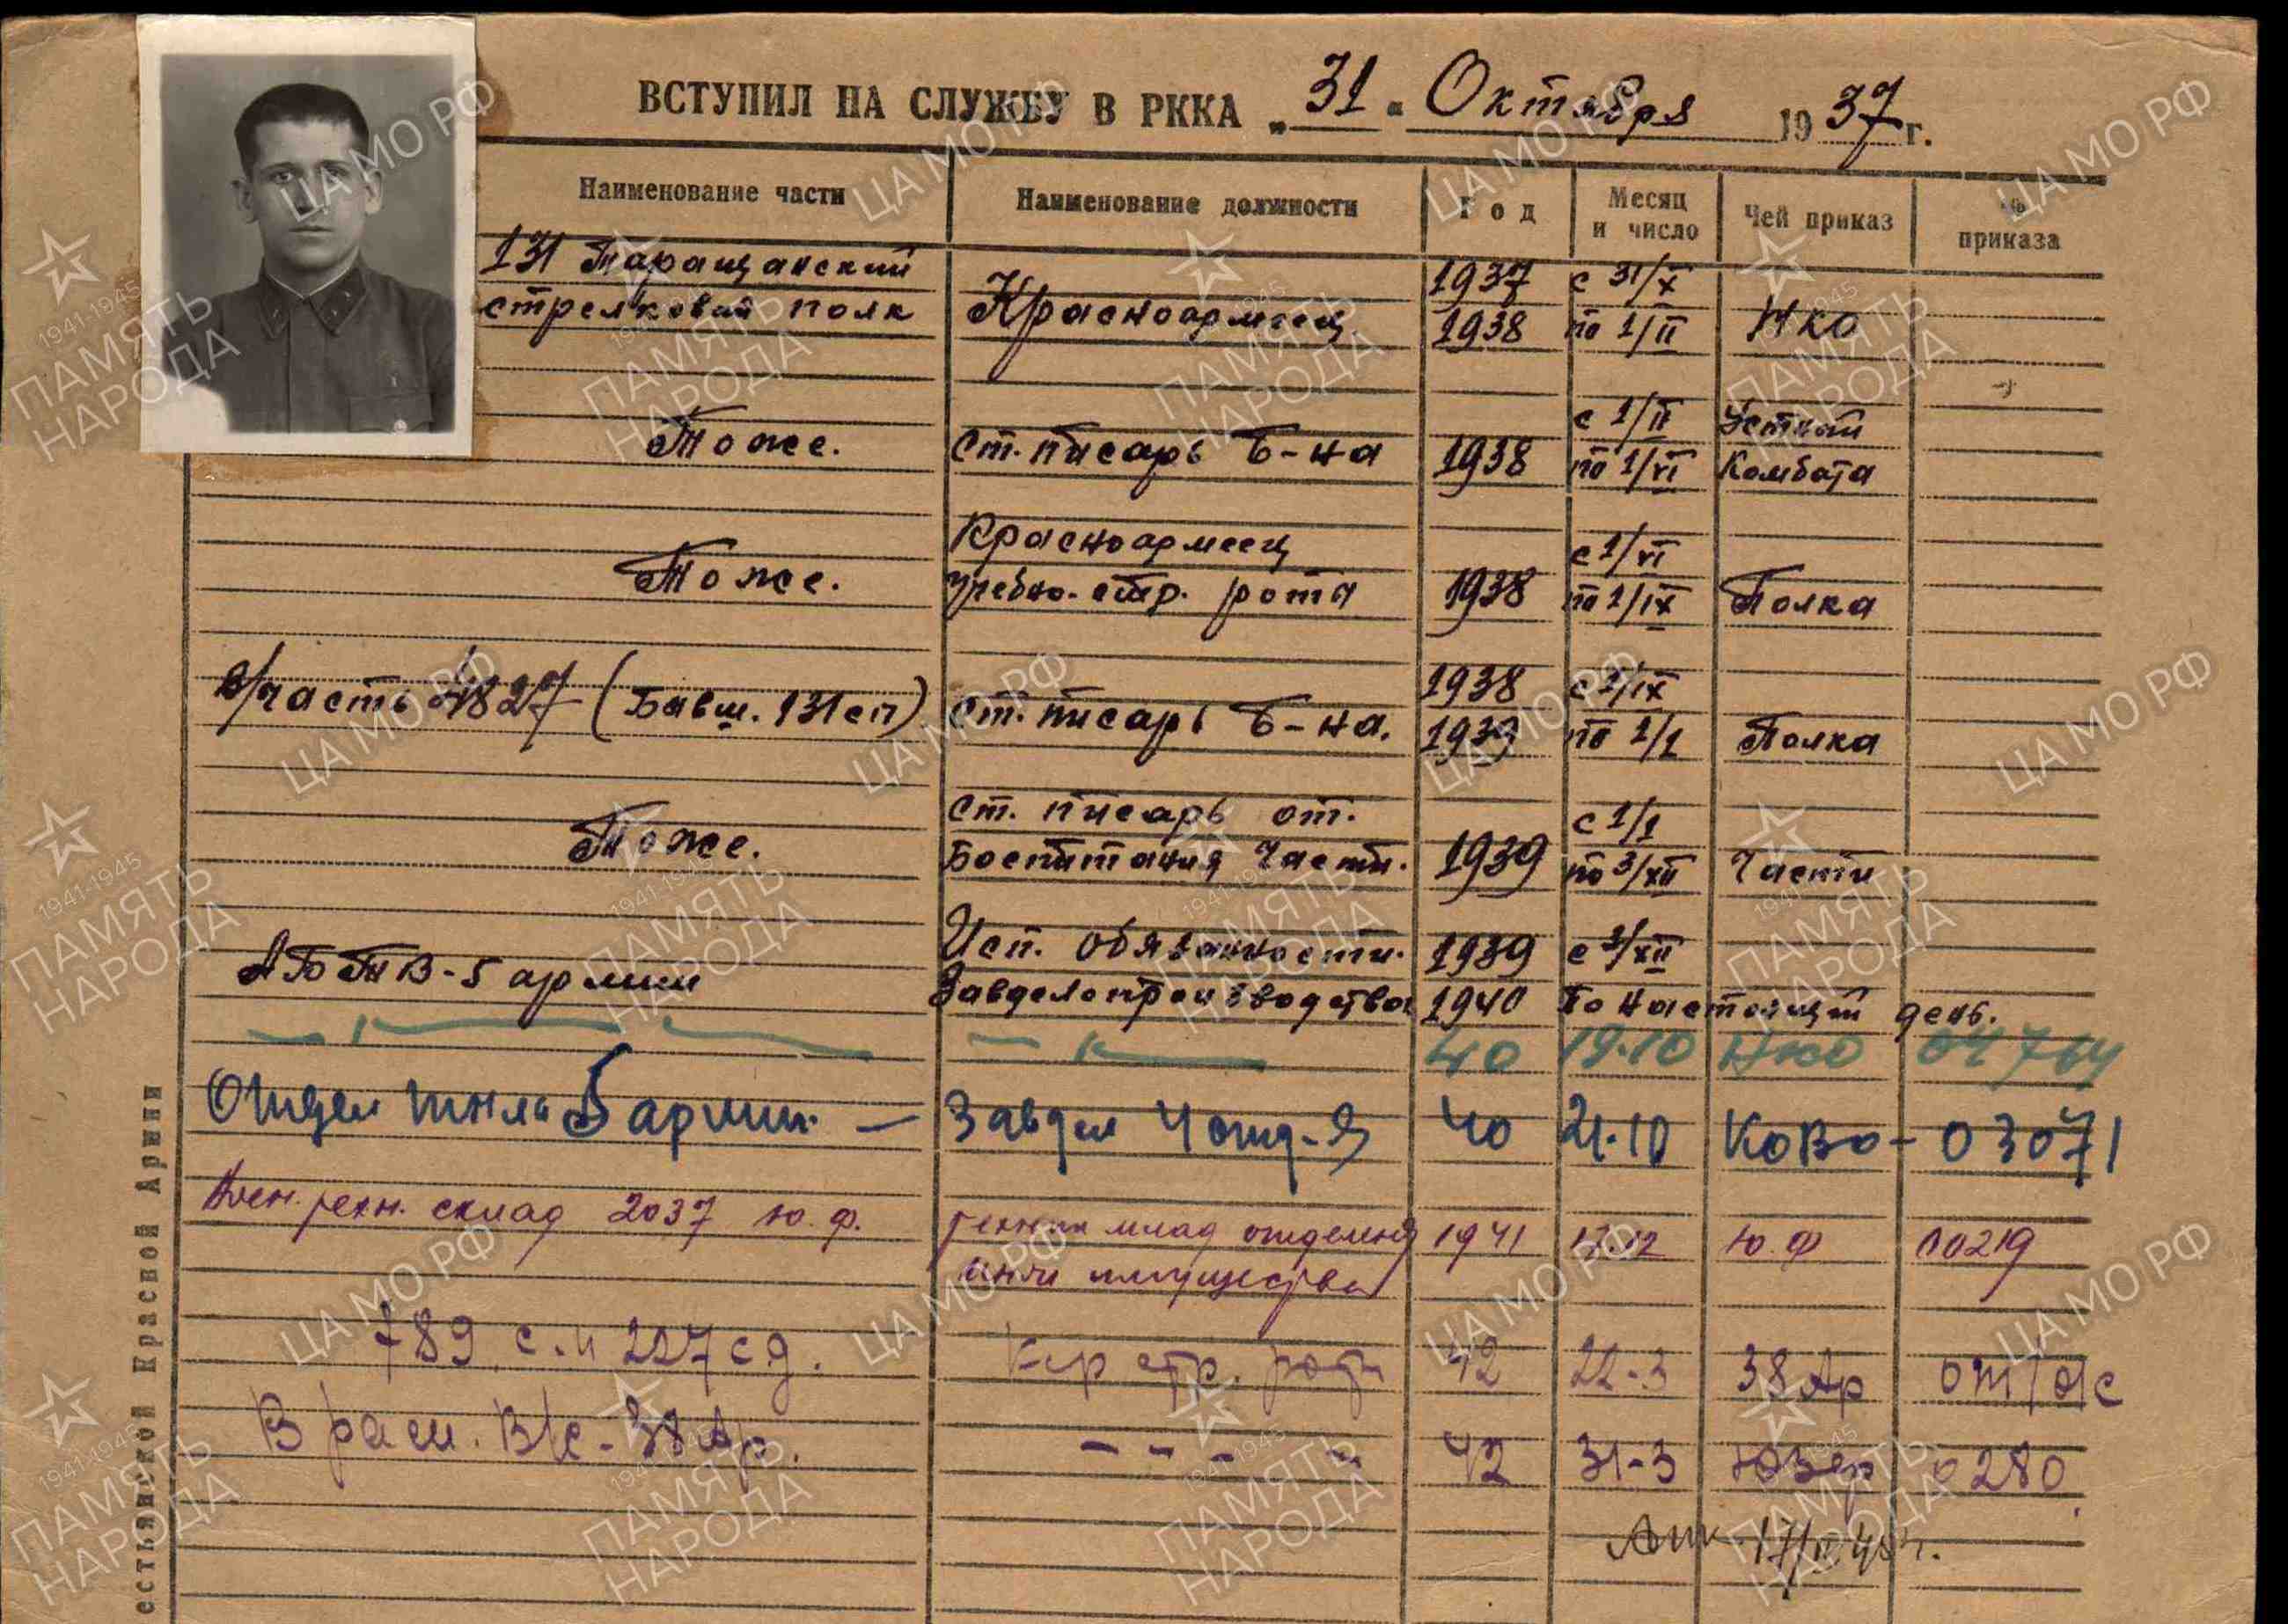 ВСТУПИЛ НА СЛУЖБУ В РККА „31" Октября 1937 г.
Наименование части Наименование должности Год Месяц и число Чей приказ № приказа
131 Таращанский 1937 с 31/X
стрелковый полк Красноармеец 1938 по 1/II НКО
с 1/II Устный
Тоже. Ст. писарь Б-на 1938 по 1/VI Комбата
Красноармеец с 1/VI
Тоже. учебно. стр. рота 1938 по 1/IX Полка
1938 с 1/IX
В/часть 4827 (Бавш. 131 сп) Ст. писарь Б-на. 1939 по 1/1 Полка
Ст. писарь от. с 1/1
Тоже. Воспитания Части. 1939 по 3/XII Части
Исп. обязанности. 1939 с 3/XII
АБТВ-5 армии Завделопроизводства 1940 По настоящий день.
— " — — " — 40 19.10 НКО 04764
Отдел тыла 5 армии. — Завдел 4 отд-я 40 21.10 КОВО - 03071
техн. склад 2037 Ю.Ф. техник млад отделения 1941 17.12 Ю.Ф 00219
имущества
789 с.п 227 сд. к-р стр. роты 42 22-3 38 Ар от/д/с
В расп. В/с - 38 Ар. - - - - 42 31-3 ЮЗФр 0280
естьянской Красной Армии
ЦА МО РФ
1941-1945
ПАМЯТЬ
НАРОДА